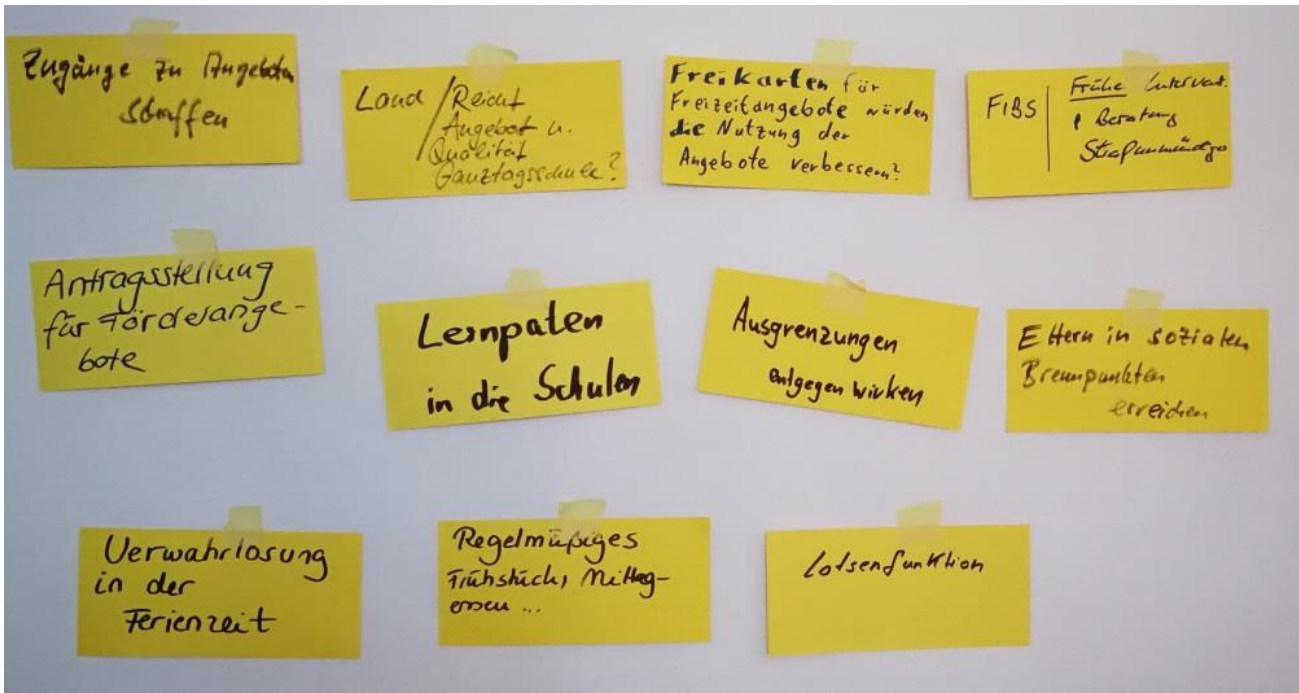 Zugänge zu Angeboten
schaffen
Land / Reicht
Angebot u.
Qualität
Ganztagsschule?
Freikarten für
Freizeitangebote würden
die Nutzung der
Angebote verbessern?
FIBS | Frühe Intervent.
Beratung
Strafunmündige
Antragsstellung
für Förderange-
bote
Lernpaten
in die Schulen
Ausgrenzungen
entgegen wirken
Eltern in sozialen
Brennpunkten
erreichen
Verwahrlosung
in der
Ferienzeit
Regelmäßiges
Frühstück, Mittag-
essen ...
Lotsenfunktion